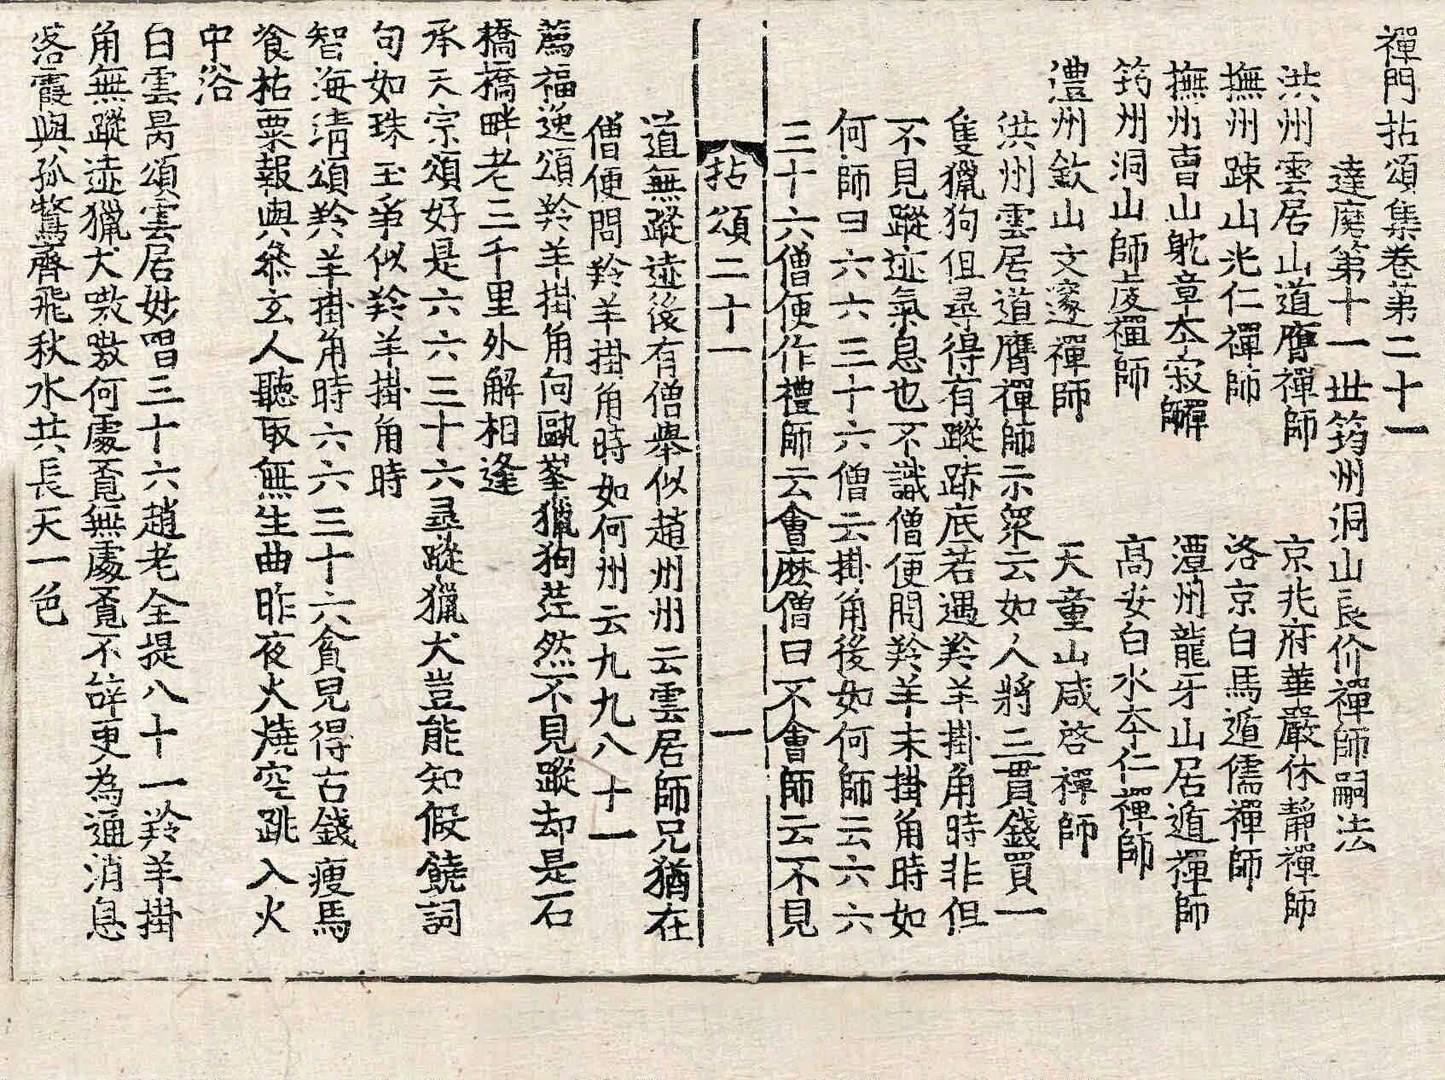 禪門拈頌集卷苐二十一
達磨第十一世筠州洞山良价禪師嗣法
洪州雲居山道膺禪師 京兆府華嚴休靜禪師
撫州踈山光仁禪師 洛京白馬遁儒禪師
撫州曹山躭章夲寂禪師 潭州龍牙山居遁禪師
筠州洞山師虔禪師 高安白水夲仁禪師
澧州欽山文邃禪師 天童山咸啓禪師
洪州雲居道膺禪師示衆云如人將三貫錢買一
隻獵狗但尋得有蹤跡底若遇羚羊掛角時非但
不見蹤迹氣息也不識僧便問羚羊未掛角時如
何師曰六六三十六僧云掛角後如何師云六六
三十六僧便作禮師云會麽僧曰不會師云不見
拈頌二十一 一
道無蹤迹後有僧擧似趙州州云雲居師兄猶在
僧便問羚羊掛角時如何州云九九八十一
薦福逸頌羚羊掛角向歐峯獵狗茫然不見蹤却是石
橋橋畔老三千里外解相逢
承天宗頌好是六六三十六尋蹤獵犬豈能知假饒詞
句如珠玉爭似羚羊掛角時
智海淸頌羚羊掛角時六六三十六貪兒得古錢瘦馬
飡拈粟報與叅玄人聽取無生曲昨夜火燒空跳入火
中浴
白雲昺頌雲居妙唱三十六趙老全提八十一羚羊掛
角無蹤迹獵犬嗷嗷何處覔無處覔不辞更為通消息
落霞與孤鶩齊飛秋水共長天一色